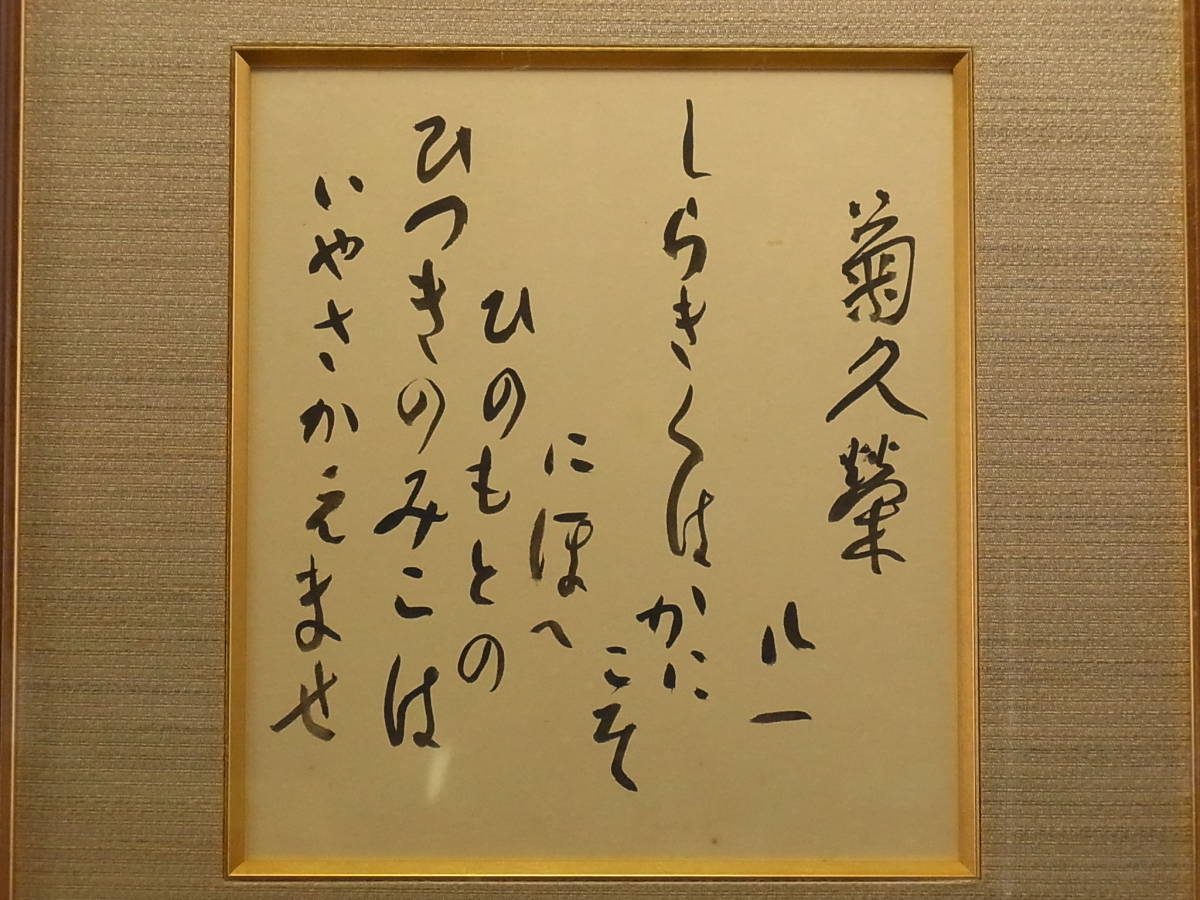 菊久榮
凡一
しらきくはかに
こそ
にほへ
ひのもとの
ひつきのみこは
いやさかえませ